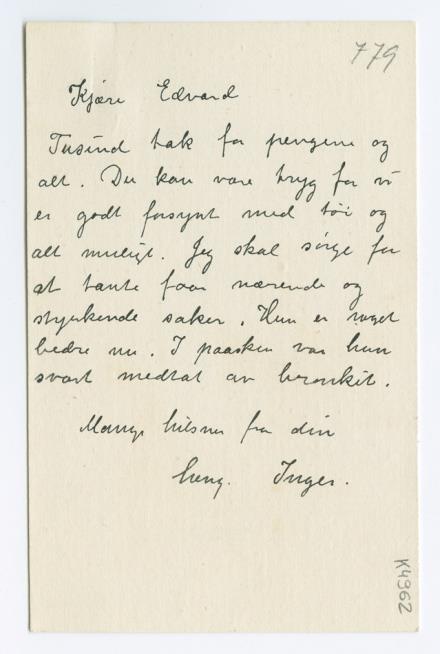 779
Kjære Edvard
Tusind tak for pengene og
alt. Du kan være tryg for vi
er godt forsynt med töi og
alt muligt. Jeg skal sörge for
at tante faar nærende og
styrkende saker. Hun er noget
bedre nu. I paasken var hun
svært medtat av bronkit.
Mange hilsner fra din
heng. Inger.
K4962